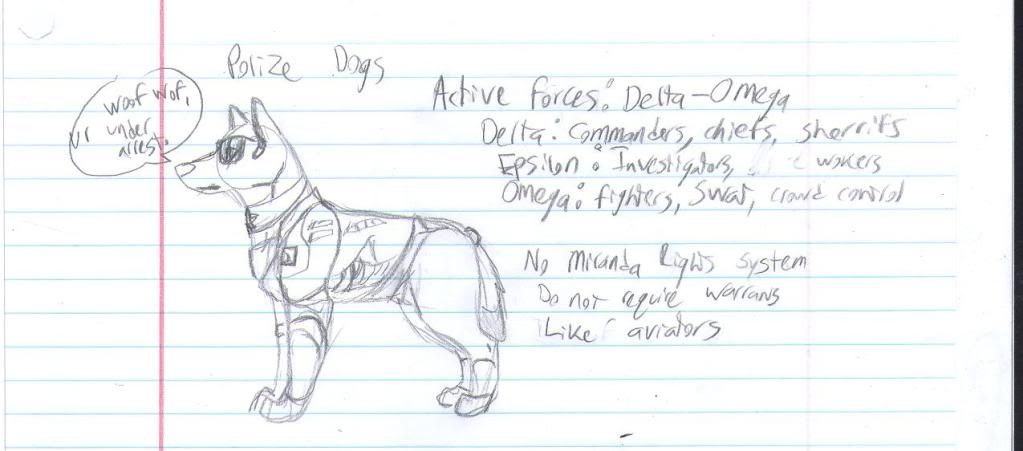 Polize Dogs
woof wof,
ur under
arrest.
Active forces: Delta-Omega
Delta: Commanders, chiefs, sherrifs
Epsilon: Investigators, wokers
Omega: fighters, Swat, crowd control
No Miranda Rights system
Do not require warrans
Like aviators